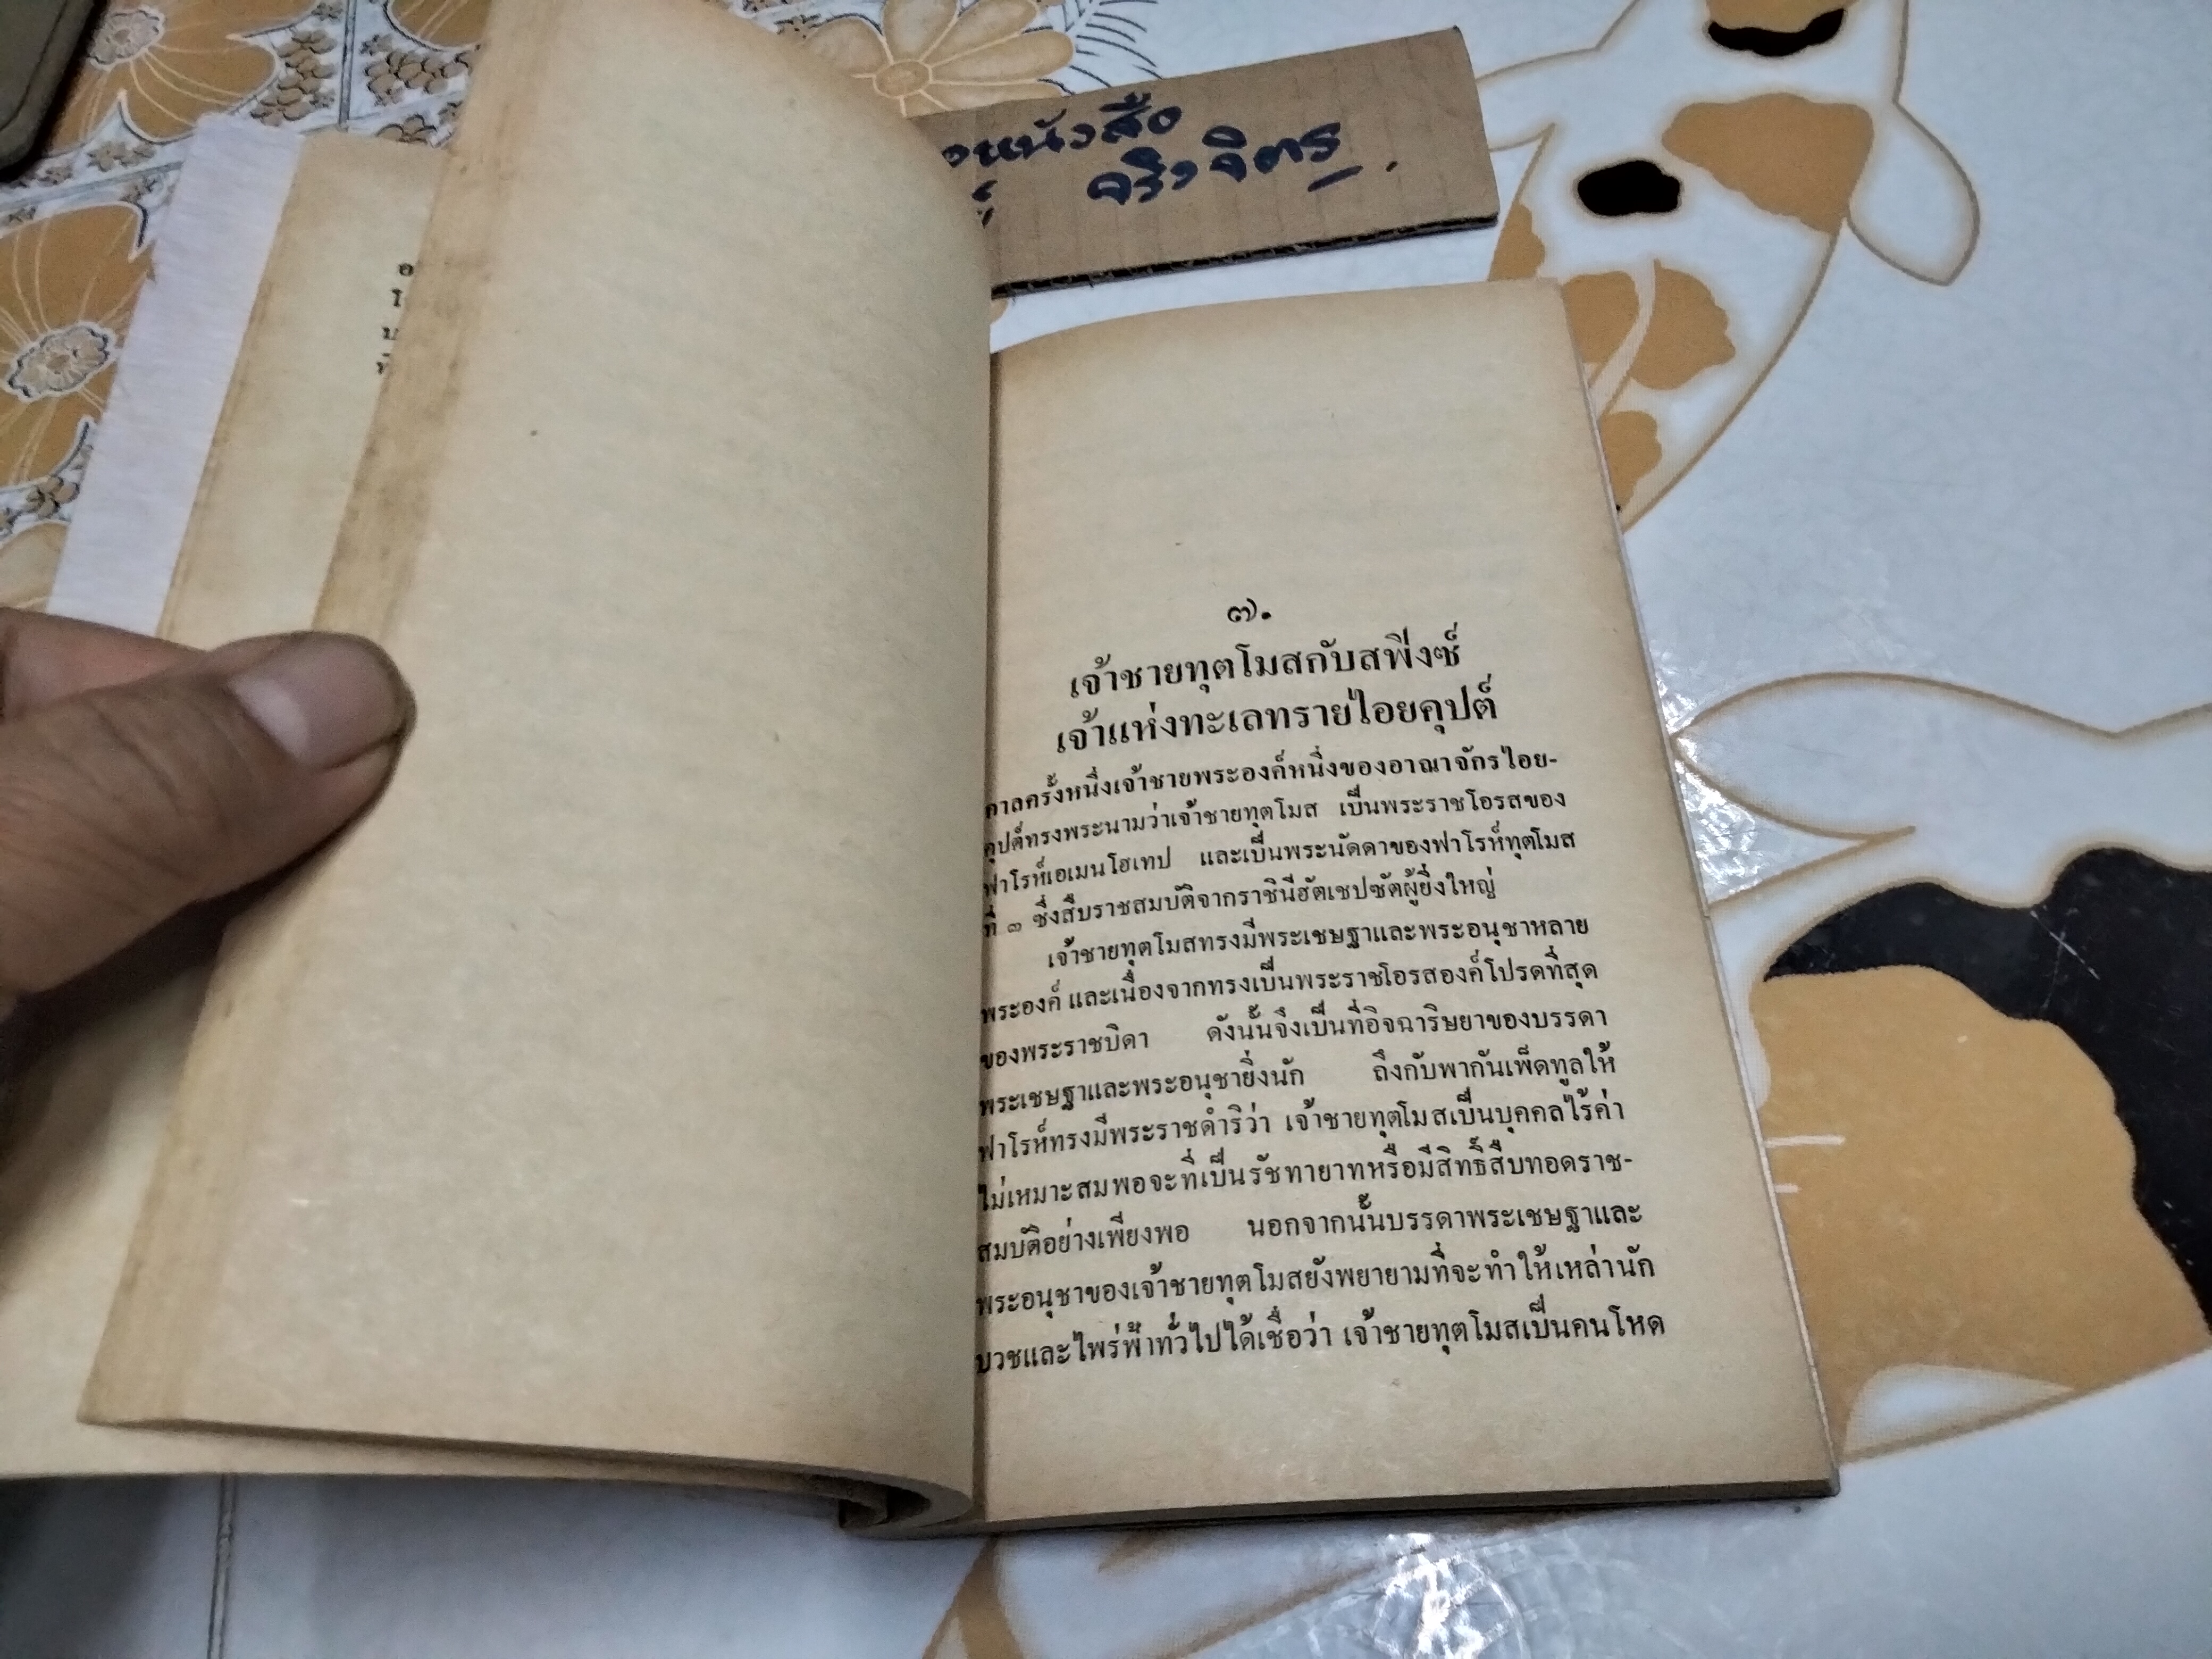 หนังสือ
จริงจิตร
๗.
เจ้าชายทุตโมสกับสฟิงซ์
เจ้าแห่งทะเลทรายไอยคุปต์
กาลครั้งหนึ่งเจ้าชายพระองค์หนึ่งของอาณาจักรไอย-
คุปต์ทรงพระนามว่าเจ้าชายทุตโมส เป็นพระราชโอรสของ
ฟาโรห์เอเมนโฮเทป และเป็นพระนัดดาของฟาโรห์ทุตโมส
ที่ ๓ ซึ่งสืบราชสมบัติจากราชินีฮัตเชปซัตผู้ยิ่งใหญ่
เจ้าชายทุตโมสทรงมีพระเชษฐาและพระอนุชาหลาย
พระองค์ และเนื่องจากทรงเป็นพระราชโอรสองค์โปรดที่สุด
ของพระราชบิดา ดังนั้นจึงเป็นที่อิจฉาริษยาของบรรดา
พระเชษฐาและพระอนุชายิ่งนัก ถึงกับพากันเพ็ดทูลให้
ฟาโรห์ทรงมีพระราชดำริว่า เจ้าชายทุตโมสเป็นบุคคลไร้ค่า
ไม่เหมาะสมพอจะที่เป็นรัชทายาทหรือมีสิทธิ์สืบทอดราช-
สมบัติอย่างเพียงพอ นอกจากนั้นบรรดาพระเชษฐาและ
พระอนุชาของเจ้าชายทุตโมสยังพยายามที่จะทำให้เหล่านัก
บวชและไพร่ฟ้าทั่วไปได้เชื่อว่า เจ้าชายทุตโมสเป็นคนโหด